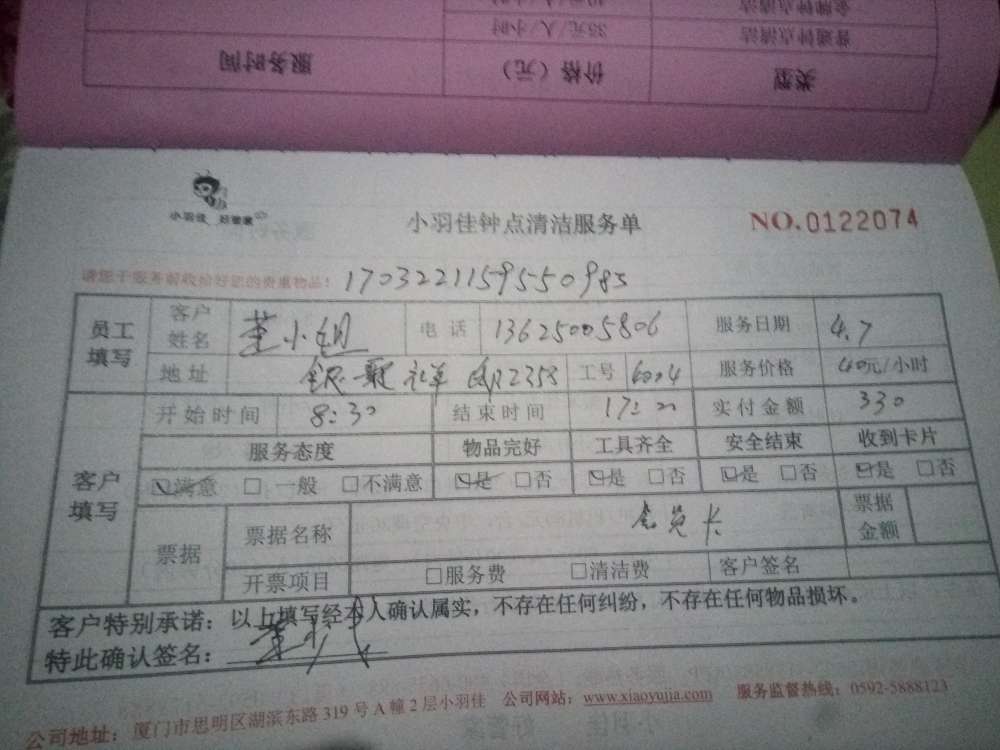 金牌钟点清洁
普通钟点清洁 35元/人/小时
类型 价格（元） 服务时间
小羽佳 好管家
小羽佳钟点清洁服务单
NO.0122074
请您于服务前收拾好您的贵重物品！ 1703221159550985
员工填写 客户姓名 董小姐 电话 13625005806 服务日期 4.7
地址 2358 工号 6004 服务价格 40元/小时
客户填写 开始时间 8:30 结束时间 17:00 实付金额 330
服务态度 物品完好 工具齐全 安全结束 收到卡片
☑满意 □一般 □不满意 ☑是 □否 ☑是 □否 ☑是 □否 ☑是 □否
票据 票据名称 会员卡 票据金额
开票项目 □服务费 □清洁费 客户签名
客户特别承诺：以上填写经本人确认属实，不存在任何纠纷，不存在任何物品损坏。
特此确认签名：
公司地址：厦门市思明区湖滨东路319号A幢2层小羽佳 公司网站：www.xiaoyujia.com 服务监督热线：0592-5888123